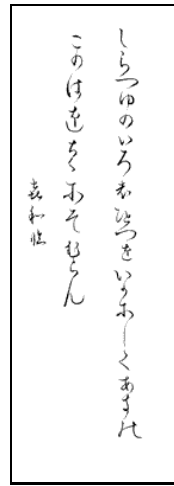 しらつゆのいろはひとつをいかにしてあきの
このはをちゝにそむらん
和臨